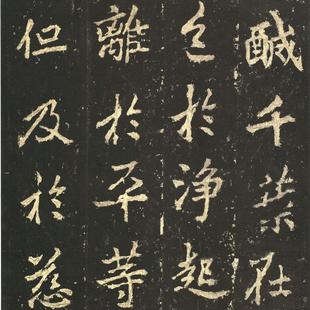 醎千葉
於淨起
離於平等
但及於慈